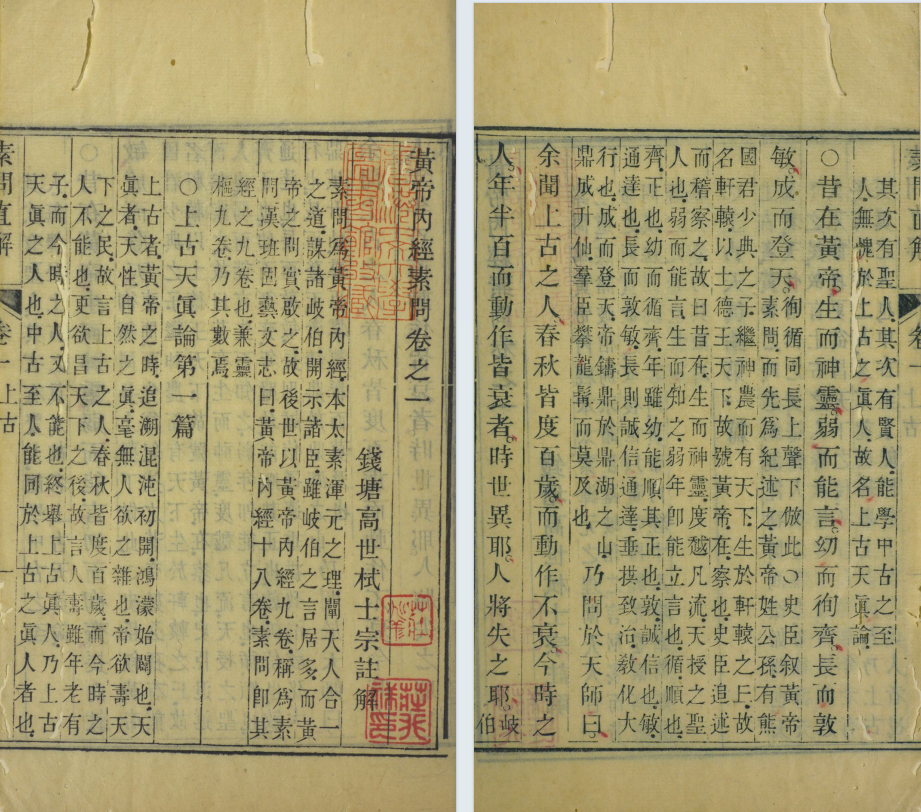 黃帝內經素問卷之一
錢塘高世栻士宗註解
素問爲黃帝內經本太素渾元之理闡天人合一
之道謀諸歧伯開示諸臣雖歧伯之言居多而黃
帝之問實啟之故後世以黃帝內經九卷稱爲素
問漢班固藝文志曰黃帝內經十八卷素問卽其
經之九卷也兼靈
樞九卷乃其數焉
○上古天眞論第一篇
上古者黃帝之時追溯混沌初開鴻濛始闢也天
眞者天性自然之眞毫無人欲之雜也帝欲壽天
下之民故言上古之人春秋皆度百歲而今時之
人不能也更欲昌天下之後故言人壽雖年老有
子而今時之人又不能也終舉上古眞人乃上古
天眞之人也中古至人能同於上古之眞人者也
素問直解 卷一 上古 一
其次有聖人其次有賢人能學中古之至
人無愧於上古之眞人故名上古天眞論
○昔在黃帝生而神靈弱而能言幼而徇齊長而敦
敏成而登天
徇循同長上聲下倣此○史臣叙黃帝
素問而先爲紀述之黃帝姓公孫有熊
國君少典之子繼神農而有天下生於軒轅之丘故
名軒轅以土德王天下故號黃帝在察也史臣追述
而稽察之故曰昔在生而神靈度越凡流天授之聖
人也弱而能言生而知之弱年卽能立言也循順也
齊正也幼而循齊年雖幼能順其正也敦誠信也敏
通達也長而敦敏長則誠信通達垂拱致治敎化大
行也成而登天帝鑄鼎於鼎湖之山
鼎成升仙羣臣攀龍髯而莫及也
乃問於天師曰
余聞上古之人春秋皆度百歲而動作不衰今時之
人年半百而動作皆衰者時世異耶人將失之耶歧
伯